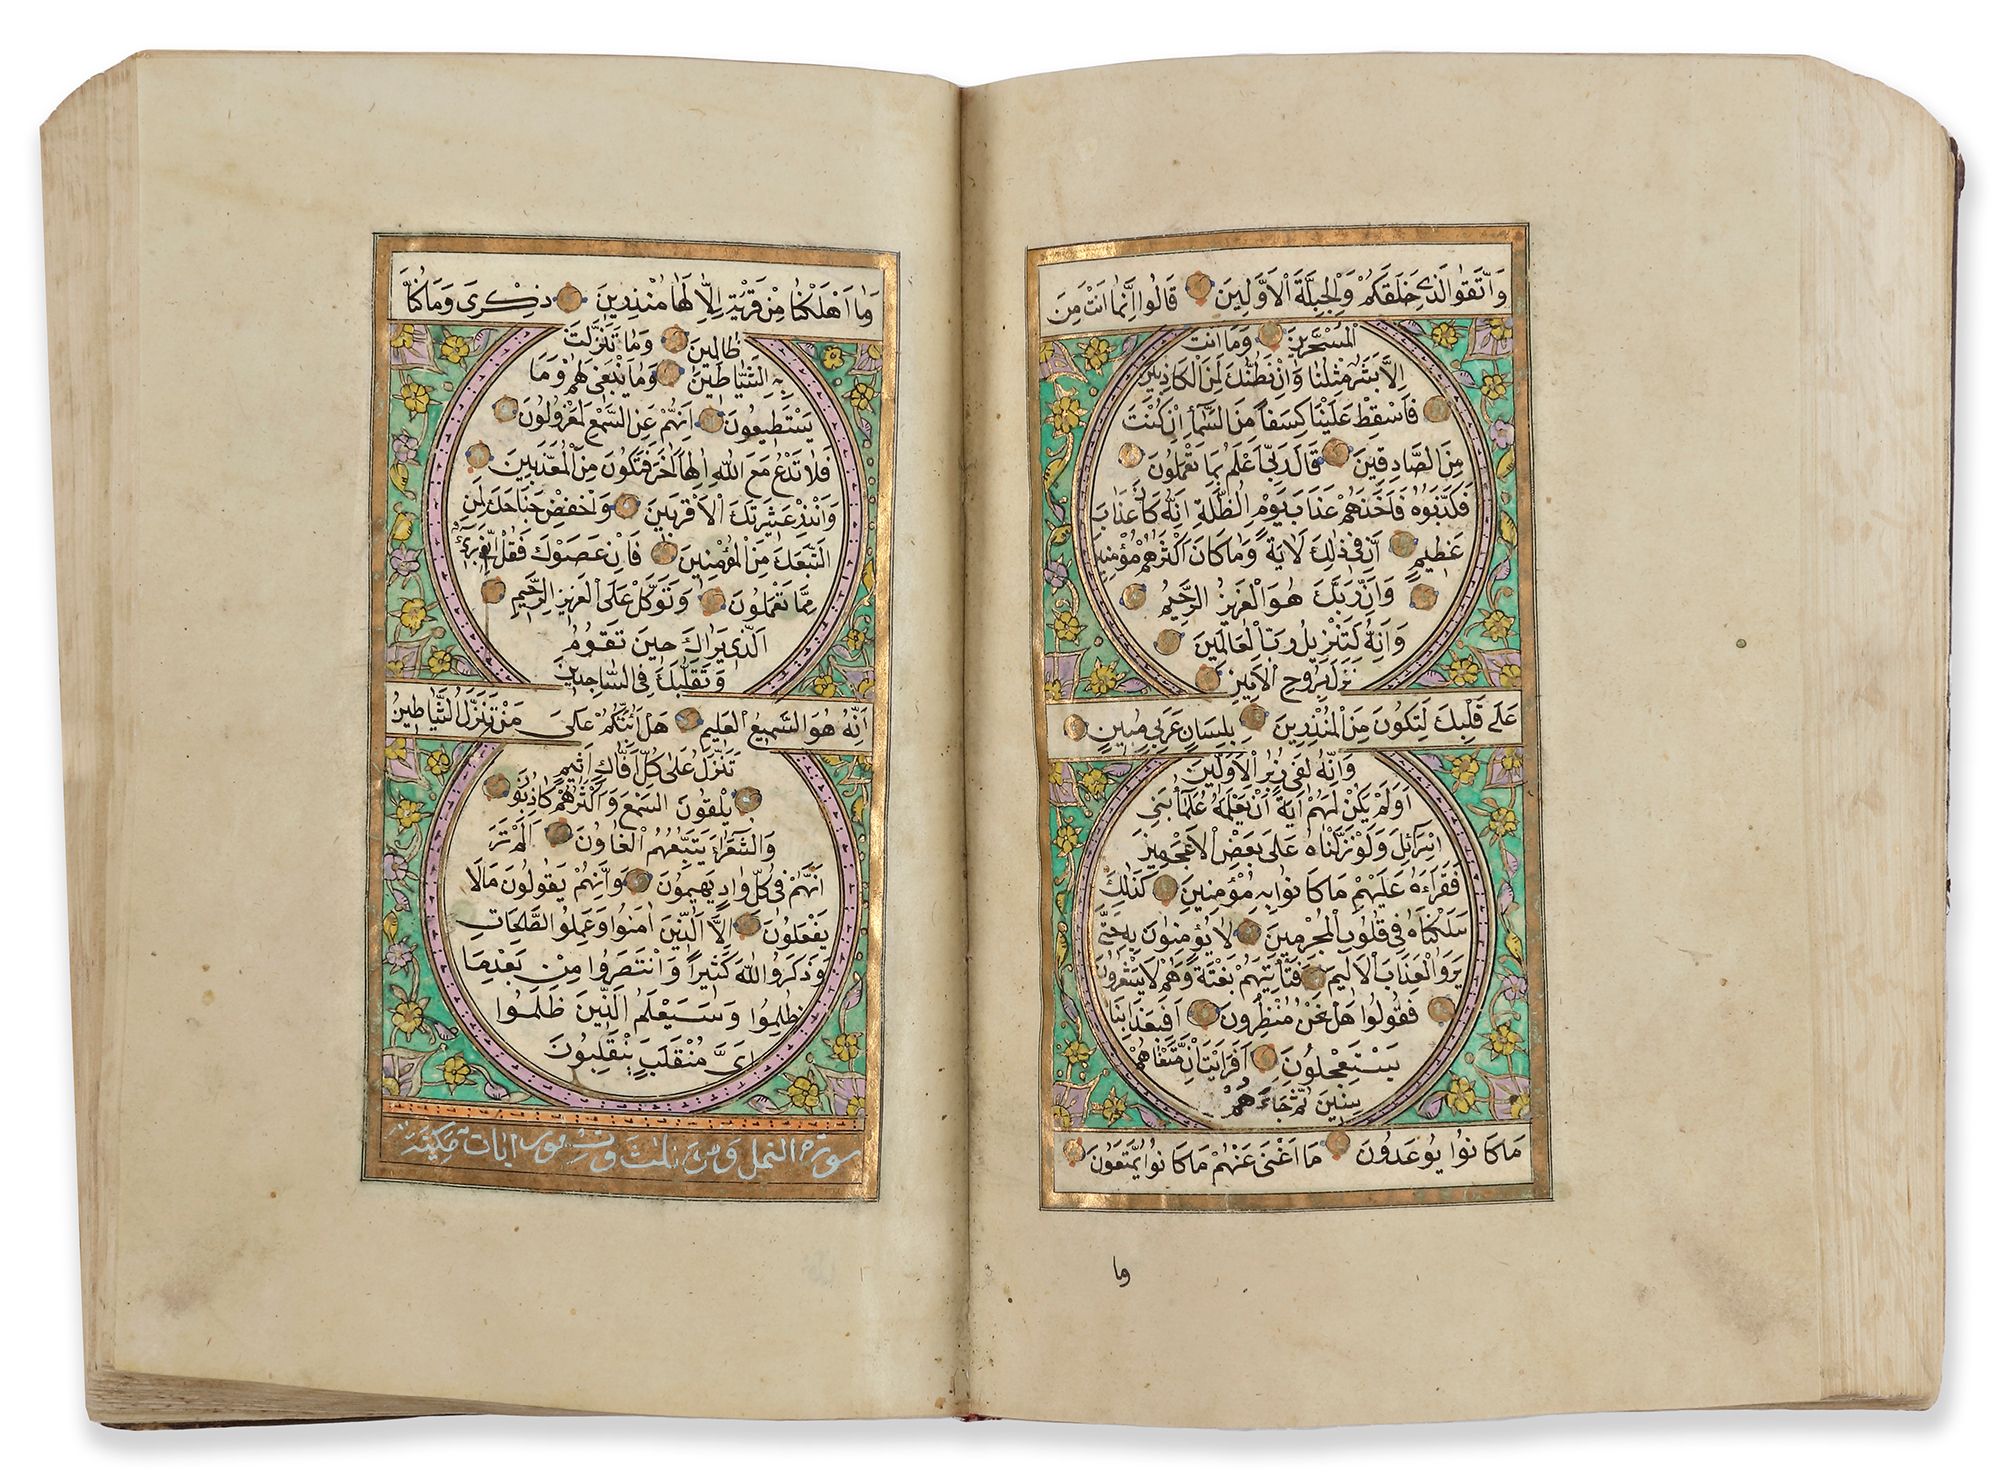 وَاتَّقُوا الَّذِي خَلَقَكُمْ وَالْجِبِلَّةَ الْاَوَّلِينَ قَالُوا اِنَّمَا اَنْتَ مِنَ
الْمُسَحَّرِينَ وَمَا اَنْتَ
اِلَّا بَشَرٌ مِثْلُنَا وَاِنْ نَظُنُّكَ لَمِنَ الْكَاذِبِينَ
فَاَسْقِطْ عَلَيْنَا كِسَفًا مِنَ السَّمَاءِ اِنْ كُنْتَ
مِنَ الصَّادِقِينَ قَالَ رَبِّي اَعْلَمُ بِمَا تَعْمَلُونَ
فَكَذَّبُوهُ فَاَخَذَهُمْ عَذَابُ يَوْمِ الظُّلَّةِ اِنَّهُ كَانَ عَذَابَ
عَظِيمٍ اِنَّ فِي ذٰلِكَ لَاٰيَةً وَمَا كَانَ اَكْثَرُهُمْ مُؤْمِنِينَ
وَاِنَّ رَبَّكَ هُوَ الْعَزِيزُ الرَّحِيمُ
وَاِنَّهُ لَتَنْزِيلُ رَبِّ الْعَالَمِينَ
نَزَلَ بِرُوحِ الْاَمِينِ
عَلٰى قَلْبِكَ لِتَكُونَ مِنَ الْمُنْذِرِينَ بِلِسَانٍ عَرَبِيٍّ مُبِينٍ
وَاِنَّهُ لَفِي زُبُرِ الْاَوَّلِينَ
اَوَلَمْ يَكُنْ لَهُمْ اٰيَةً اَنْ يَعْلَمَهُ عُلَمَاءُ بَنِي
اِسْرَائِلَ وَلَوْ نَزَّلْنَاهُ عَلٰى بَعْضِ الْاَعْجَمِينَ
فَقَرَاَهُ عَلَيْهِمْ مَا كَانُوا بِهِ مُؤْمِنِينَ كَذٰلِكَ
سَلَكْنَاهُ فِي قُلُوبِ الْمُجْرِمِينَ لَا يُؤْمِنُونَ بِهِ حَتّٰى
يَرَوُا الْعَذَابَ الْاَلِيمَ فَتَاْتِيَهُمْ بَغْتَةً وَهُمْ لَا يَشْعُرُونَ
فَيَقُولُوا هَلْ نَحْنُ مُنْظَرُونَ اَفَبِعَذَابِنَا
يَسْتَعْجِلُونَ اَفَرَاَيْتَ اِنْ مَتَّعْنَاهُمْ
سِنِينَ ثُمَّ جَاءَهُمْ
مَا كَانُوا يُوعَدُونَ مَا اَغْنٰى عَنْهُمْ مَا كَانُوا يُمَتَّعُونَ
وما
وَمَا اَهْلَكْنَا مِنْ قَرْيَةٍ اِلَّا لَهَا مُنْذِرِينَ ذِكْرٰى وَمَا كُنَّا
ظَالِمِينَ وَمَا تَنَزَّلَتْ
بِهِ الشَّيَاطِينُ وَمَا يَنْبَغِي لَهُمْ وَمَا
يَسْتَطِيعُونَ اِنَّهُمْ عَنِ السَّمْعِ لَمَعْزُولُونَ
فَلَا تَدْعُ مَعَ اللّٰهِ اِلٰهًا اٰخَرَ فَتَكُونَ مِنَ الْمُعَذَّبِينَ
وَاَنْذِرْ عَشِيرَتَكَ الْاَقْرَبِينَ وَاخْفِضْ جَنَاحَكَ لِمَنِ
اتَّبَعَكَ مِنَ الْمُؤْمِنِينَ فَاِنْ عَصَوْكَ فَقُلْ اِنِّي بَرِيءٌ
مِمَّا تَعْمَلُونَ وَتَوَكَّلْ عَلَى الْعَزِيزِ الرَّحِيمِ
اَلَّذِي يَرَاكَ حِينَ تَقُومُ
وَتَقَلُّبَكَ فِي السَّاجِدِينَ
اِنَّهُ هُوَ السَّمِيعُ الْعَلِيمُ هَلْ اُنَبِّئُكُمْ عَلٰى مَنْ تَنَزَّلُ الشَّيَاطِينُ
تَنَزَّلُ عَلٰى كُلِّ اَفَّاكٍ اَثِيمٍ
يُلْقُونَ السَّمْعَ وَاَكْثَرُهُمْ كَاذِبُونَ
وَالشُّعَرَاءُ يَتَّبِعُهُمُ الْغَاوُونَ اَلَمْ تَرَ
اَنَّهُمْ فِي كُلِّ وَادٍ يَهِيمُونَ وَاَنَّهُمْ يَقُولُونَ مَالَا
يَفْعَلُونَ اِلَّا الَّذِينَ اٰمَنُوا وَعَمِلُوا الصَّالِحَاتِ
وَذَكَرُوا اللّٰهَ كَثِيرًا وَانْتَصَرُوا مِنْ بَعْدِ مَا
ظُلِمُوا وَسَيَعْلَمُ الَّذِينَ ظَلَمُوا
اَيَّ مُنْقَلَبٍ يَنْقَلِبُونَ
سورة النمل اٰيات مكية